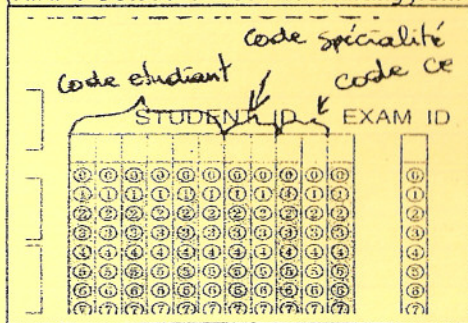 AND TECHNOLOGY
code spécialité
code etudiant
code ce
STUDENT ID EXAM ID
0 0 0 0 0 0 0 0 0 0 0
1 1 1 1 1 1 1 1 1 1 1
2 2 2 2 2 2 2 2 2 2 2
3 3 3 3 3 3 3 3 3 3 3
4 4 4 4 4 4 4 4 4 4 4
5 5 5 5 5 5 5 5 5 5 5
6 6 6 6 6 6 6 6 6 6 6
7 7 7 7 7 7 7 7 7 7 7